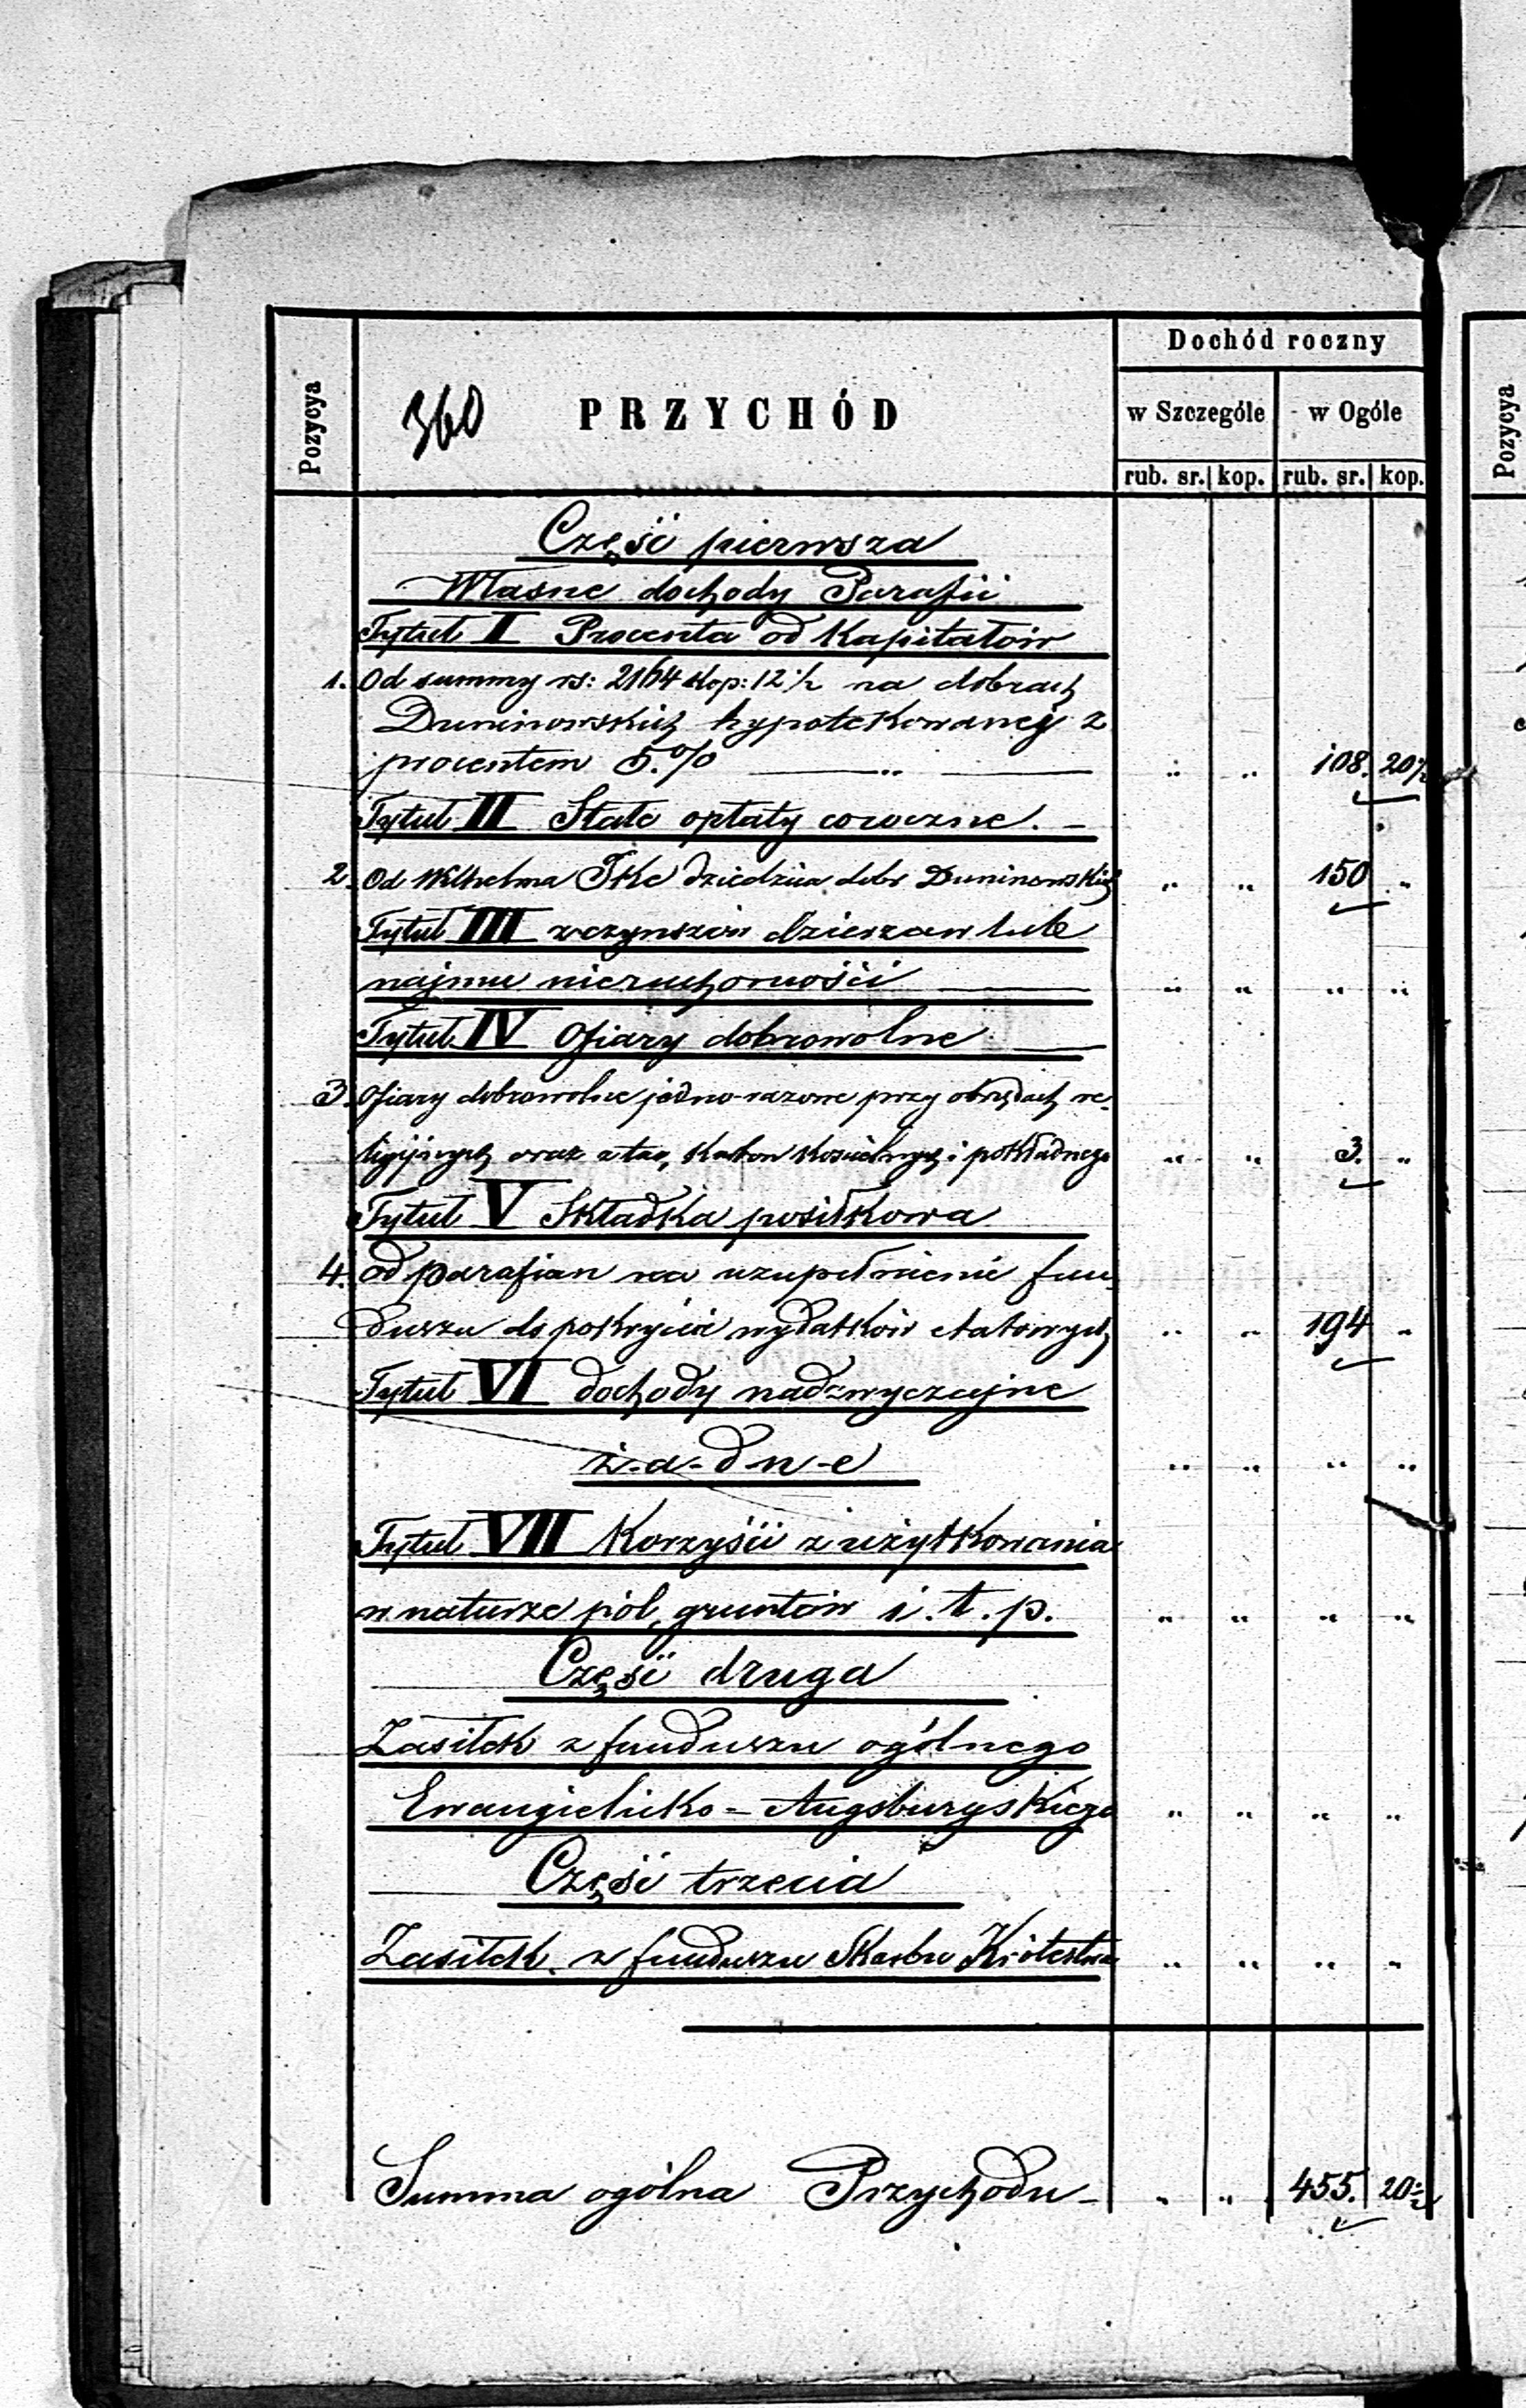 Dochód roczny
Pozycya
360
PRZYCHÓD
w Szczególe
w Ogóle
Pozycya
rub. sr. kop. rub. sr. kop.
Część pierwsza
Własne dochody Parafii
Tytuł I Procenta od Kapitałów
1. Od summy rs: 2164 kop: 12½ na dobrach
Duninowskich hypotekowanej z
procentem 5.% „ „ „ 108. 20½
Tytuł II Stałe opłaty coroczne. —
2. Od Wilhelma Ike dziedzica dobr Duninowskich „ „ 150 „
Tytuł III z czynszów dzierzaw lub
najmu nieruchomości — „ „ „ „
Tytuł IV Ofiary dobrowolne —
3. Ofiary dobrowolne jedno-razowe przy obrzędach re-
ligijnych oraz z tac, Karbon Kościelnych i pokładnego „ „ 3. „
Tytuł V Składka posiłkowa
4. od parafian na uzupełnienie fun-
duszu do pokrycia wydatków etatowych „ „ 194 „
Tytuł VI dochody nadzwyczajne
ż-a-d-n-e „ „ „ „
Tytuł VII Korzyści z użytkowania
w naturze pól, gruntów i. t. p. „ „ „ „
Część druga
Zasiłek z funduszu ogólnego
Ewangielicko-Augsburyskiego „ „ „ „
Część trzecia
Zasiłek z funduszu Skarbu Królestwa „ „ „ „
Summa ogólna Przychodu — „ „ 455. 20½